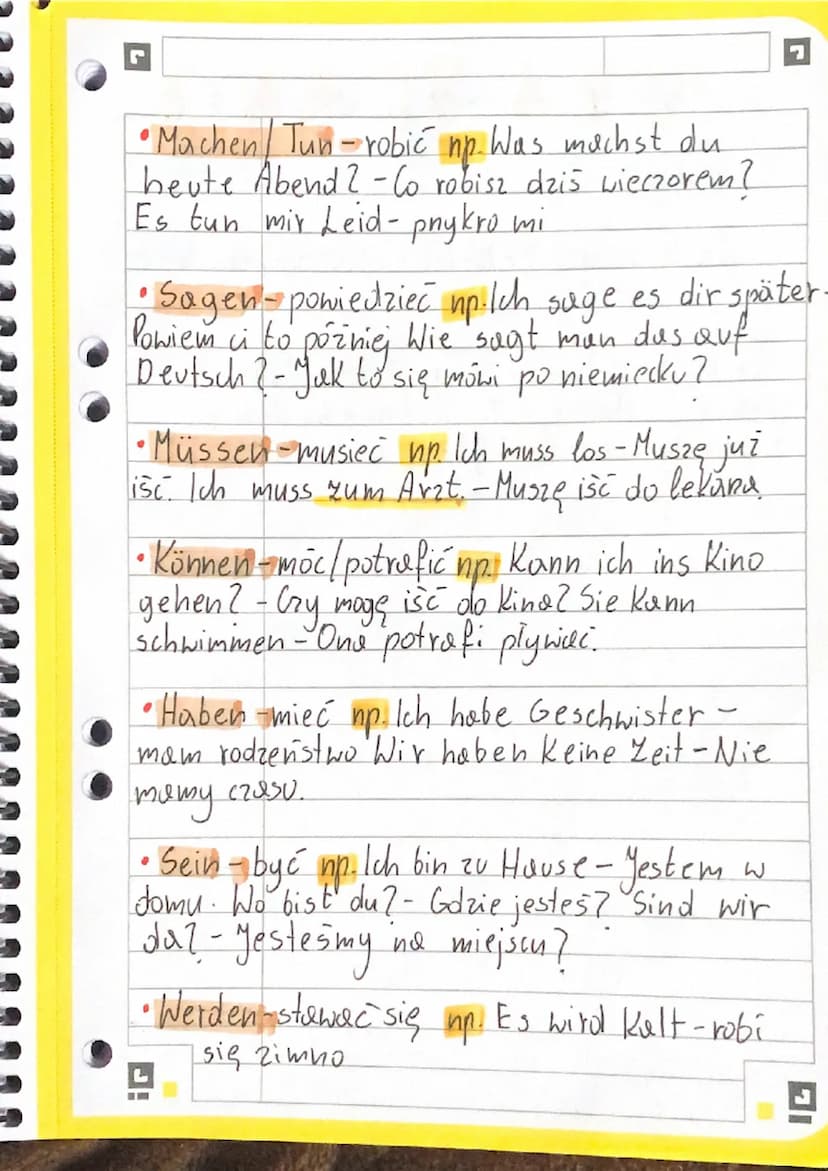 • Machen/ Tun – robić np. Was machst du
heute Abend? – Co robisz dziś wieczorem?
Es tun mir Leid – przykro mi
• Sagen – powiedzieć np. Ich sage es dir später –
Powiem ci to później Wie sagt man das auf
Deutsch? – Jak to się mówi po niemiecku?
• Müssen – musieć np. Ich muss los – Muszę już
iść. Ich muss zum Arzt. – Muszę iść do lekarza
• Können – móc/potrafić np. Kann ich ins Kino
gehen? – Czy mogę iść do kina? Sie Kann
schwimmen – Ona potrafi pływać.
• Haben – mieć np. Ich habe Geschwister –
mam rodzeństwo Wir haben Keine Zeit – Nie
mamy czasu.
• Sein – być np. Ich bin zu Hause – Jestem w
domu. Wo bist du? – Gdzie jesteś? Sind wir
da? – Jesteśmy na miejscu?
• Werden – stawać się np. Es wird Kalt – robi
się zimno